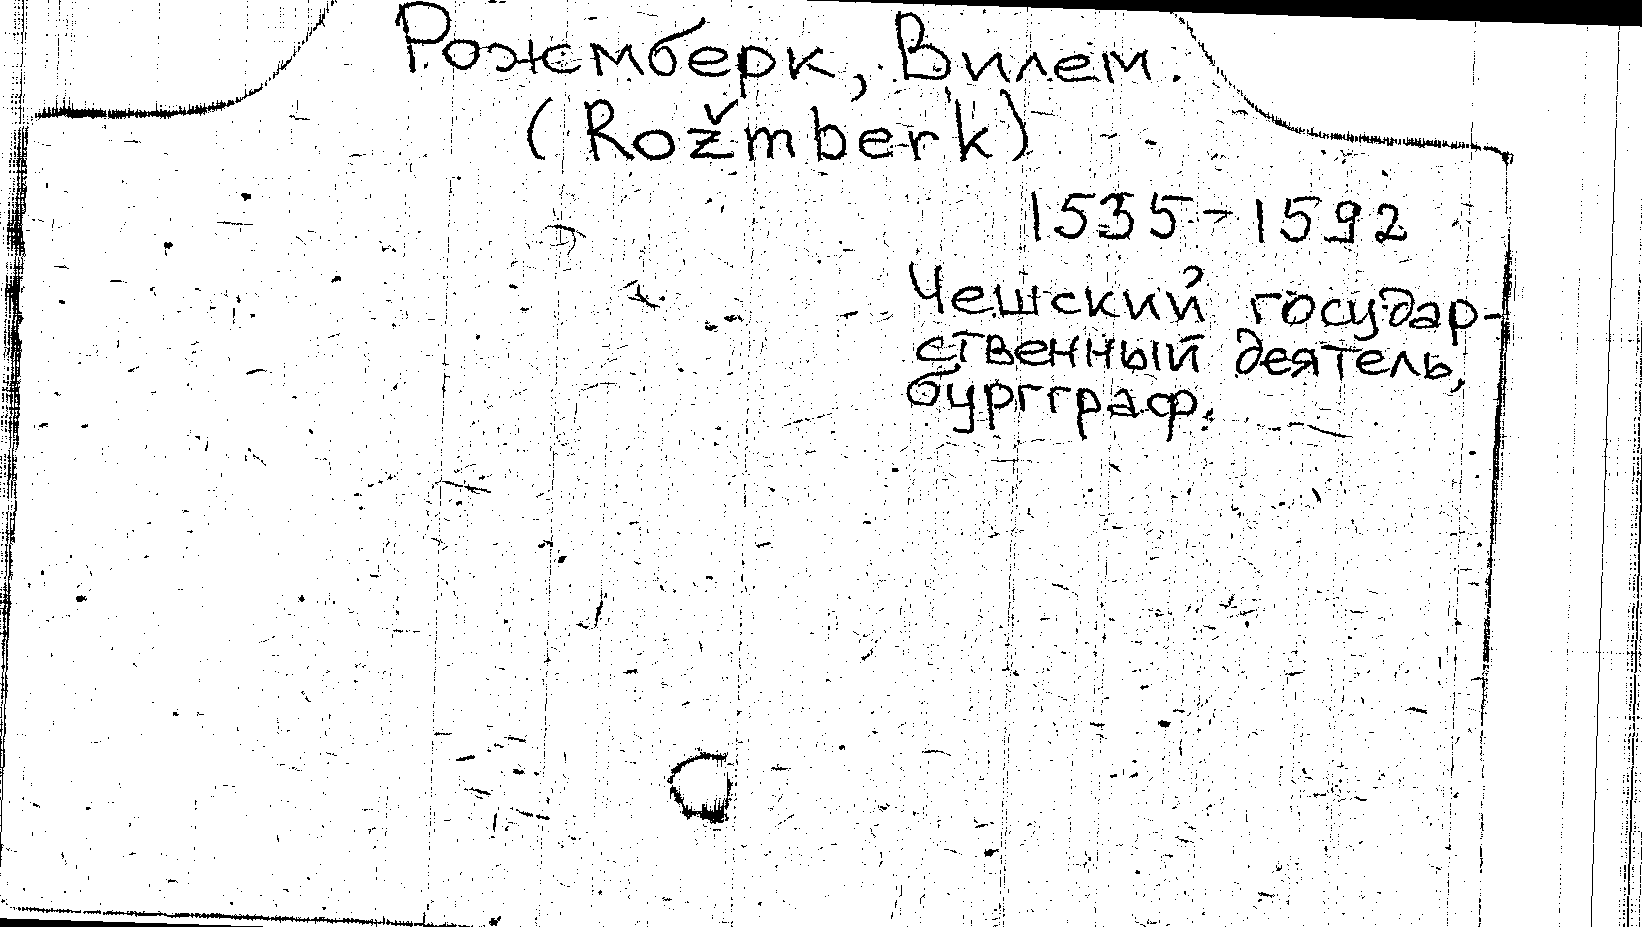 Рожмберк, Вилем.
(Rožmberk)
1535-1592
Чешский государ-
ственный деятель,
бургграф.